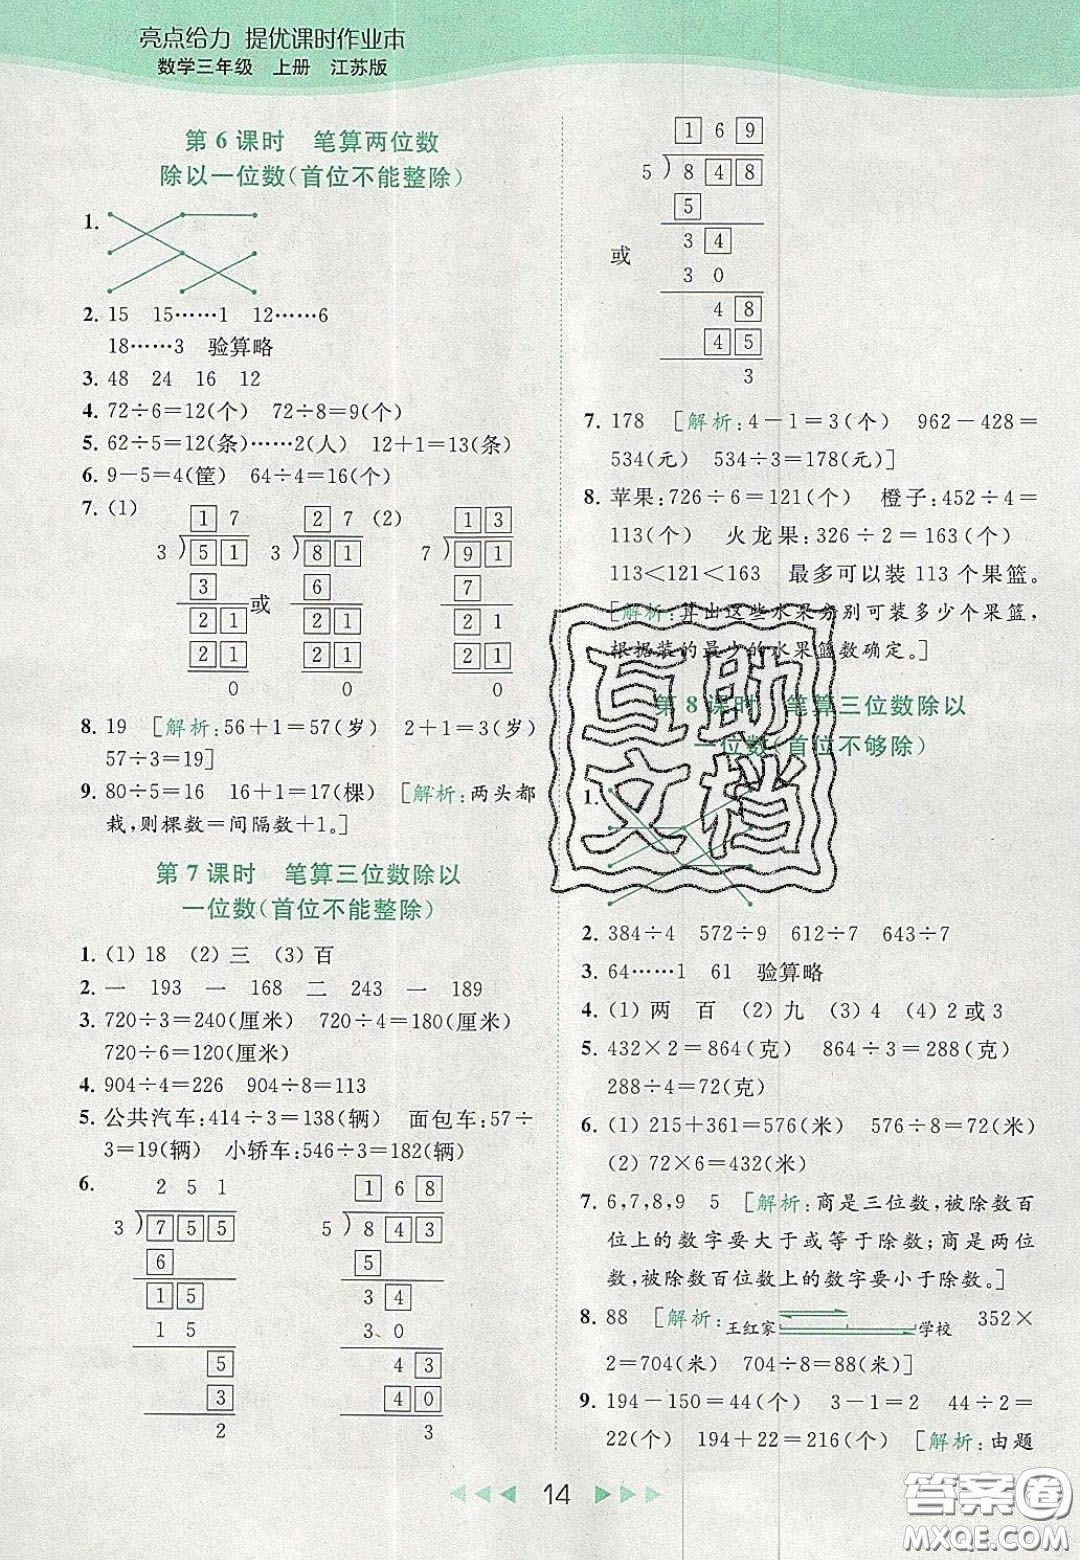 亮点给力 提优课时作业本
数学三年级 上册 江苏版
第6课时 笔算两位数
除以一位数(首位不能整除)
1.
2. 15 15……1 12……6
18……3 验算略
3. 48 24 16 12
4. 72÷6=12(个) 72÷8=9(个)
5. 62÷5=12(条)……2(人) 12+1=13(条)
6. 9-5=4(筐) 64÷4=16(个)
7. (1) (2)
1 7 2 7 1 3
3 ) 5 1 3 ) 8 1 7 ) 9 1
3 6 7
2 1 或 2 1 2 1
2 1 2 1 2 1
0 0 0
8. 19 [解析:56+1=57(岁) 2+1=3(岁)
57÷3=19]
9. 80÷5=16 16+1=17(棵) [解析:两头都
栽,则棵数=间隔数+1。]
第7课时 笔算三位数除以
一位数(首位不能整除)
1. (1) 18 (2) 三 (3) 百
2. 一 193 一 168 二 243 一 189
3. 720÷3=240(厘米) 720÷4=180(厘米)
720÷6=120(厘米)
4. 904÷4=226 904÷8=113
5. 公共汽车:414÷3=138(辆) 面包车:57÷
3=19(辆) 小轿车:546÷3=182(辆)
6.
2 5 1 1 6 8
3 ) 7 5 5 5 ) 8 4 3
6 5
1 5 3 4
1 5 3 0
5 4 3
3 4 0
2 3
1 6 9
5 ) 8 4 8
5
或 3 4
3 0
4 8
4 5
3
7. 178 [解析:4-1=3(个) 962-428=
534(元) 534÷3=178(元)]
8. 苹果:726÷6=121(个) 橙子:452÷4=
113(个) 火龙果:326÷2=163(个)
113<121<163 最多可以装113个果篮。
[解析:算出这些水果分别可装多少个果篮,
根据装的最少的水果篮数确定。]
第8课时 笔算三位数除以
一位数(首位不够除)
1.
2. 384÷4 572÷9 612÷7 643÷7
3. 64……1 61 验算略
4. (1) 两 百 (2) 九 (3) 4 (4) 2或3
5. 432×2=864(克) 864÷3=288(克)
288÷4=72(克)
6. (1) 215+361=576(米) 576÷8=72(米)
(2) 72×6=432(米)
7. 6,7,8,9 5 [解析:商是三位数,被除数百
位上的数字要大于或等于除数;商是两位
数,被除数百位数上的数字要小于除数。]
8. 88 [解析: 王红家 学校 352×
2=704(米) 704÷8=88(米)]
9. 194-150=44(个) 3-1=2 44÷2=
22(个) 194+22=216(个) [解析:由题
14
互助
文档
答案圈
MXQE.COM